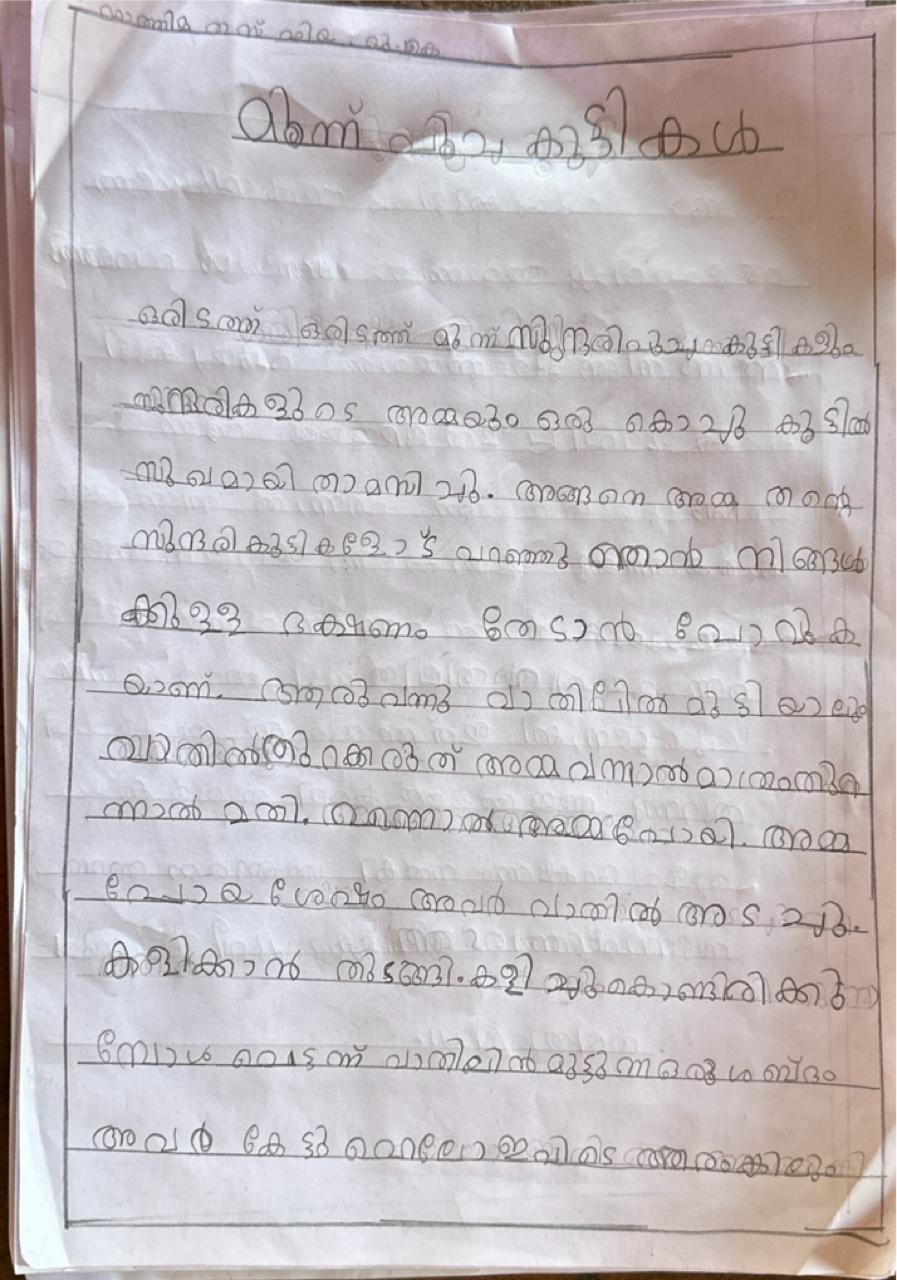 മൂന്ന് പൂച്ച കുട്ടികൾ
ഒരിടത്ത് ഒരിടത്ത് മൂന്ന് സുന്ദരി പൂച്ചക്കുട്ടികളും
സുന്ദരികളുടെ അമ്മയും ഒരു കൊച്ചു കൂട്ടിൽ
സുഖമായി താമസിച്ചു. അങ്ങനെ അമ്മ തന്റെ
സുന്ദരികുട്ടികളോട് പറഞ്ഞു ഞാൻ നിങ്ങൾ
ക്കുള്ള ഭക്ഷണം തേടാൻ പോവുക
യാണ്. ആരുവന്നു വാതിലിൽ മുട്ടിയാലും
വാതിൽതുറക്കരുത് അമ്മ വന്നാൽ മാത്രംതുറ
ന്നാൽ മതി. അമ്മപോയി. അമ്മ
പോയ ശേഷം അവർ വാതിൽ അടച്ചു.
കളിക്കാൻ തുടങ്ങി. കളിച്ചുകൊണ്ടിരിക്കു
മ്പോൾ പെട്ടന്ന് വാതിലിൽ മുട്ടുന്നഒരുശബ്ദം
അവർ കേട്ടു ഹെലോ ഇവിടെ ആരെങ്കിലും